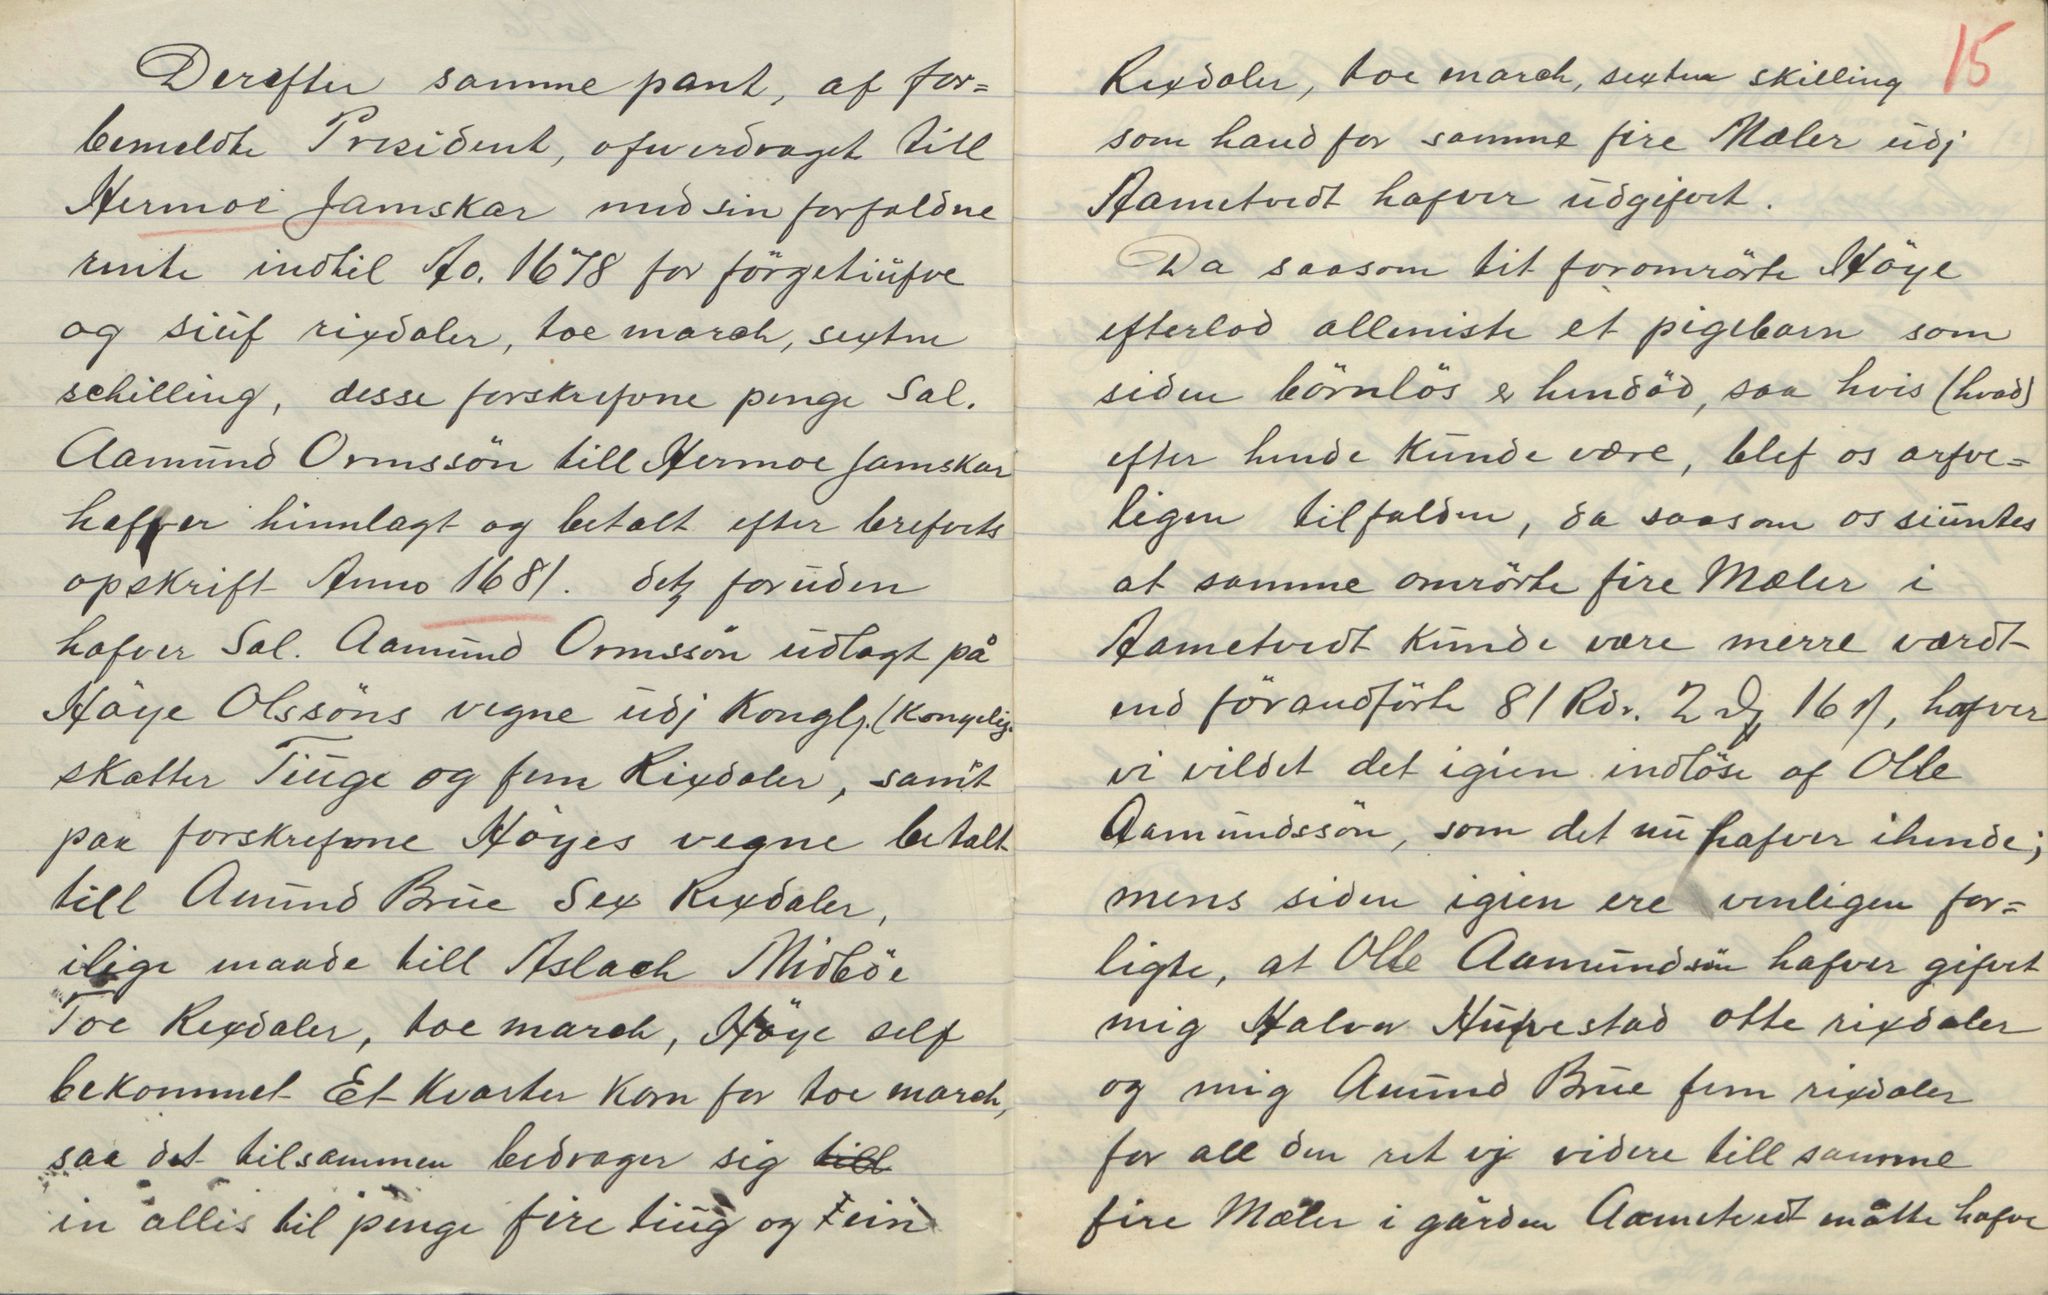 Derefter samme pant, af for=
bemeldte President, ofwerdraget till
Hermoe Jamskar med sin forfaldne
rente indtil Ao. 1678 for förgetiüfve
og siüf rixdaler, toe march, sexten
schilling, desse forskrefvne penge Sal.
Aamünd Ormssön till Hermoe Jamskar
hafver hinnlagt og betalt efter brefvets
opskrift Anno 1681. detz forüden
hafver Sal. Aamünd Ormssön üdlagt på
Höye Olssöns vegne üdj Konglj. (Kongelig.
skatter Tiüge og fem Rixdaler, samt
paa forskrefvne Höyes vegne betalt
till Amünd Brüe Sex Rixdaler,
ilige maade till Aslach Midböe
Toe Rixdaler, toe march, Höye self
bekommet Et Kvarter Korn for toe march,
saa det tilsammen bedrager sig till
in allis til penge fire tiüg og ein
15
Rixdaler, toe march, sexten skilling
som hand for samme fire Mæler üdj
Aametvedt hafver üdgifvet.
Da saasom tit foromrörte Höye
efterlod alleniste et pigebarn som
siden börnlös er hendöd, saa hvis (hvad)
efter hende Künde være, blef os arfve=
ligen tilfalden, da saasom os siüntes
at samme omrörte fire Mæler i
Aametvedt Künde være merre værdt
end förandförte 81 Rdr. 2 ꝺ 16 ß, hafver
vi vildet det igien indlöse af Olle
Aamündssön, som det nü hafver ihende;
mens siden igien ere venligen for=
ligte, at Olle Aamündsön hafver gifvet
mig Halvor Hüfvestad otte rixdaler
og mig Amünd Brüe fem rixdaler
for all den ret vj videre till samme
fire Mæler i gården Aametvedt måtte hafve